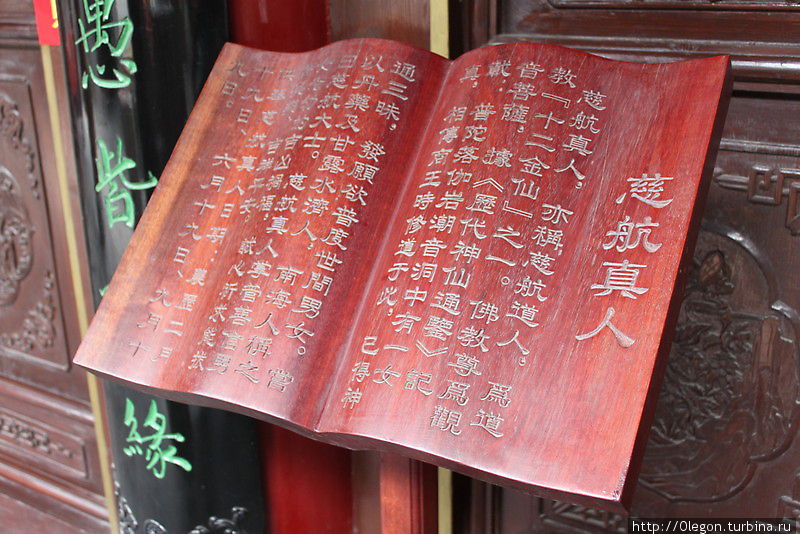 慈航真人
慈航真人，亦稱慈航道人，爲道
教『十二金仙』之一。佛教尊爲觀
音菩薩，據《歷代神仙通鑒》記
載：普陀落伽岩潮音洞中有一女
真，相傳商王時修道于此，已得神
通三昧，發願欲普度世間男女。嘗
以丹藥及甘露水濟人，南海人稱之
曰慈航大士。慈航真人掌管善信男
吉凶禍福，誠心祈求能
農歷二月
十九日、六月十九日、九月十
九日。
愚皆
緣
http://Olegon.turbina.ru